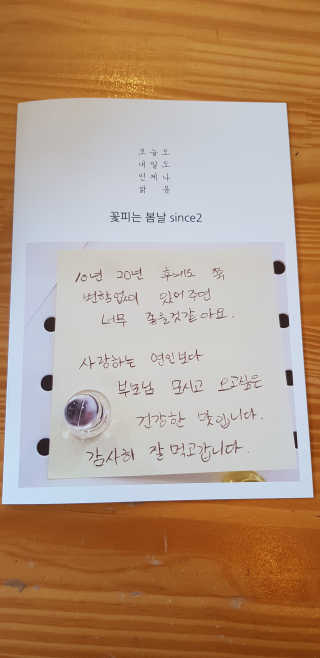 오늘도
내일도
언제나
맑음
꽃피는 봄날 since2
10년 20년 후에도 쭉
변함없이 있어주면
너무 좋을것같아요.
사랑하는 연인보다
부모님 모시고 오고싶은
건강한 맛입니다.
감사히 잘먹고갑니다.